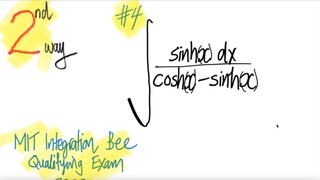 2nd way
#4
∫ sinh(x) dx / cosh(x) - sinh(x)
MIT Integration Bee
Qualifying Exam